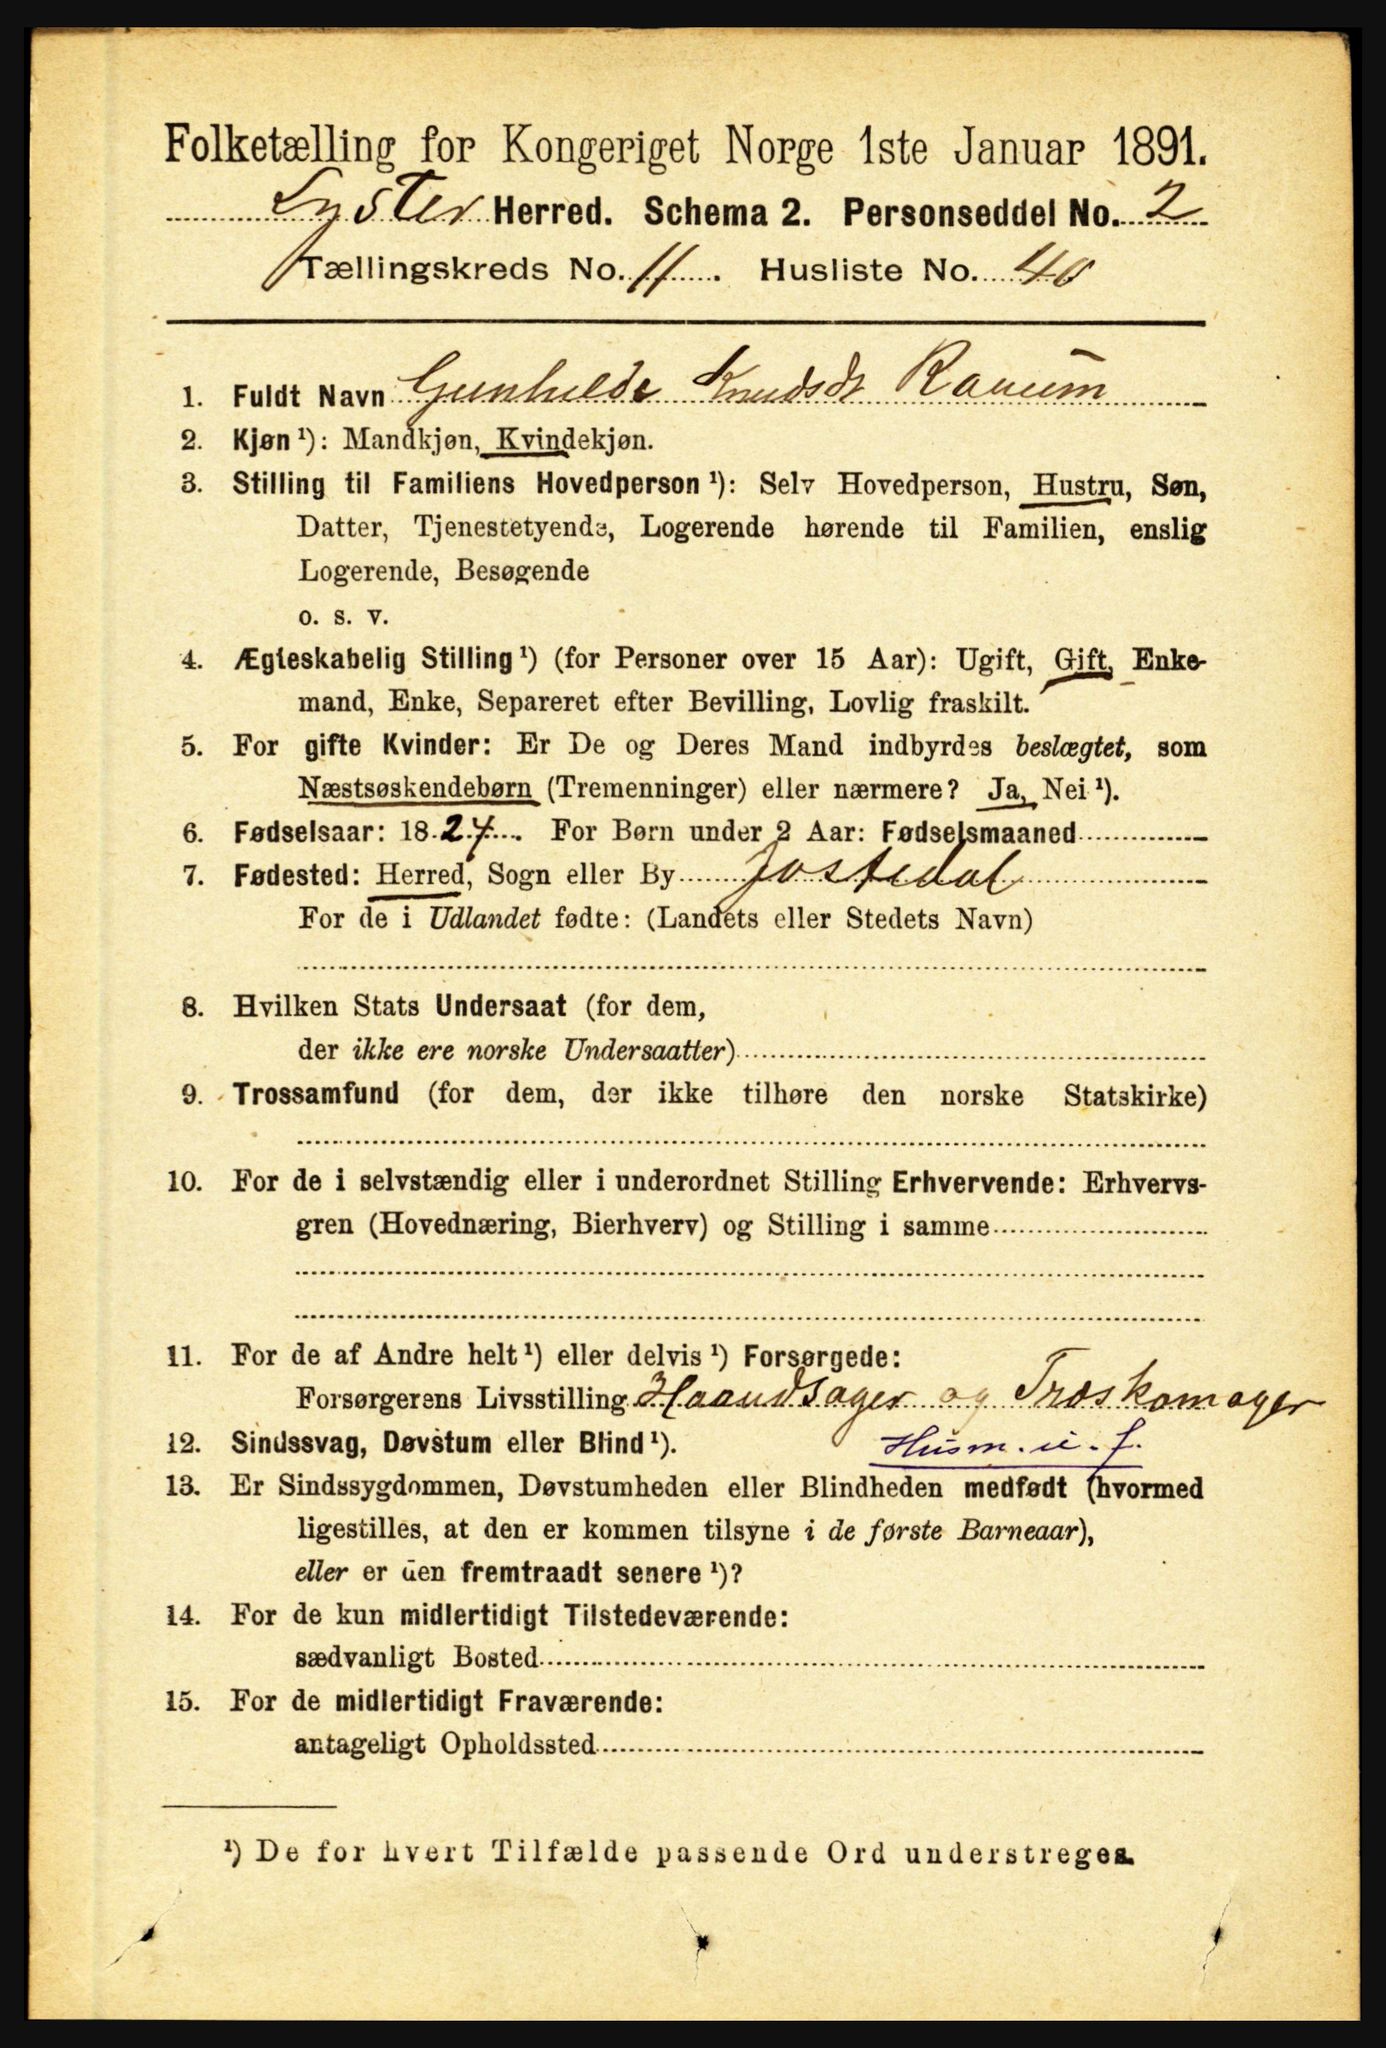 Folketælling for Kongeriget Norge 1ste Januar 1891.
Lyster Herred. Schema 2. Personseddel No. 2
Tællingskreds No. 11. Husliste No. 40
1. Fuldt Navn Gunhilde Knudsdt Raum
2. Kjøn ¹): Mandkjøn, Kvindekjøn.
3. Stilling til Familiens Hovedperson ¹): Selv Hovedperson, Hustru, Søn,
Datter, Tjenestetyende, Logerende hørende til Familien, enslig
Logerende, Besøgende
o. s. v.
4. Ægteskabelig Stilling ¹) (for Personer over 15 Aar): Ugift, Gift, Enke-
mand, Enke, Separeret efter Bevilling, Lovlig fraskilt.
5. For gifte Kvinder: Er De og Deres Mand indbyrdes beslægtet, som
Næstsøskendebørn (Tremenninger) eller nærmere? Ja, Nei ¹).
6. Fødselsaar: 1824. For Børn under 2 Aar: Fødselsmaaned
7. Fødested: Herred, Sogn eller By Jostedal
For de i Udlandet fødte: (Landets eller Stedets Navn)
8. Hvilken Stats Undersaat (for dem,
der ikke ere norske Undersaatter)
9. Trossamfund (for dem, der ikke tilhøre den norske Statskirke)
10. For de i selvstændig eller i underordnet Stilling Erhvervende: Erhvervs-
gren (Hovednæring, Bierhverv) og Stilling i samme
11. For de af Andre helt ¹) eller delvis ¹) Forsørgede:
Forsørgerens Livsstilling Haandsager og Træskomager
12. Sindssvag, Døvstum eller Blind ¹). Husm. u. f.
13. Er Sindssygdommen, Døvstumheden eller Blindheden medfødt (hvormed
ligestilles, at den er kommen tilsyne i de første Barneaar),
eller er den fremtraadt senere ¹)?
14. For de kun midlertidigt Tilstedeværende:
sædvanligt Bosted
15. For de midlertidigt Fraværende:
antageligt Opholdssted
¹) De for hvert Tilfælde passende Ord understreges.